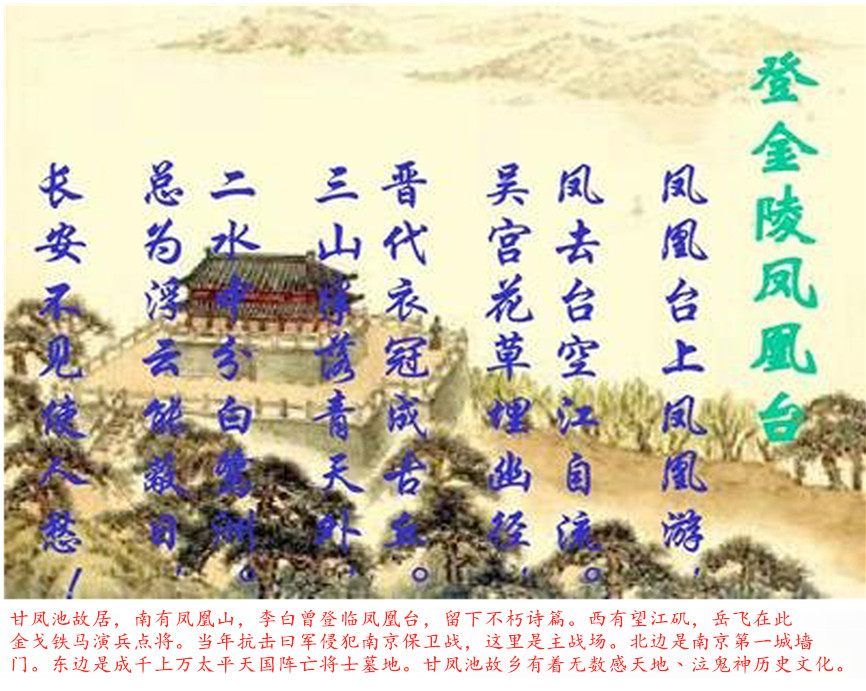 登金陵凤凰台
凤凰台上凤凰游,
凤去台空江自流。
吴宫花草埋幽径,
晋代衣冠成古丘。
三山落青天外,
二水中分白鹭洲。
总为浮云能蔽日,
长安不见使人愁!
甘凤池故居，南有凤凰山，李白曾登临凤凰台，留下不朽诗篇。西有望江矶，岳飞在此
金戈铁马演兵点将。当年抗击曰军侵犯南京保卫战，这里是主战场。北边是南京第一城墙
门。东边是成千上万太平天国阵亡将士墓地。甘凤池故乡有着无数感天地、泣鬼神历史文化。